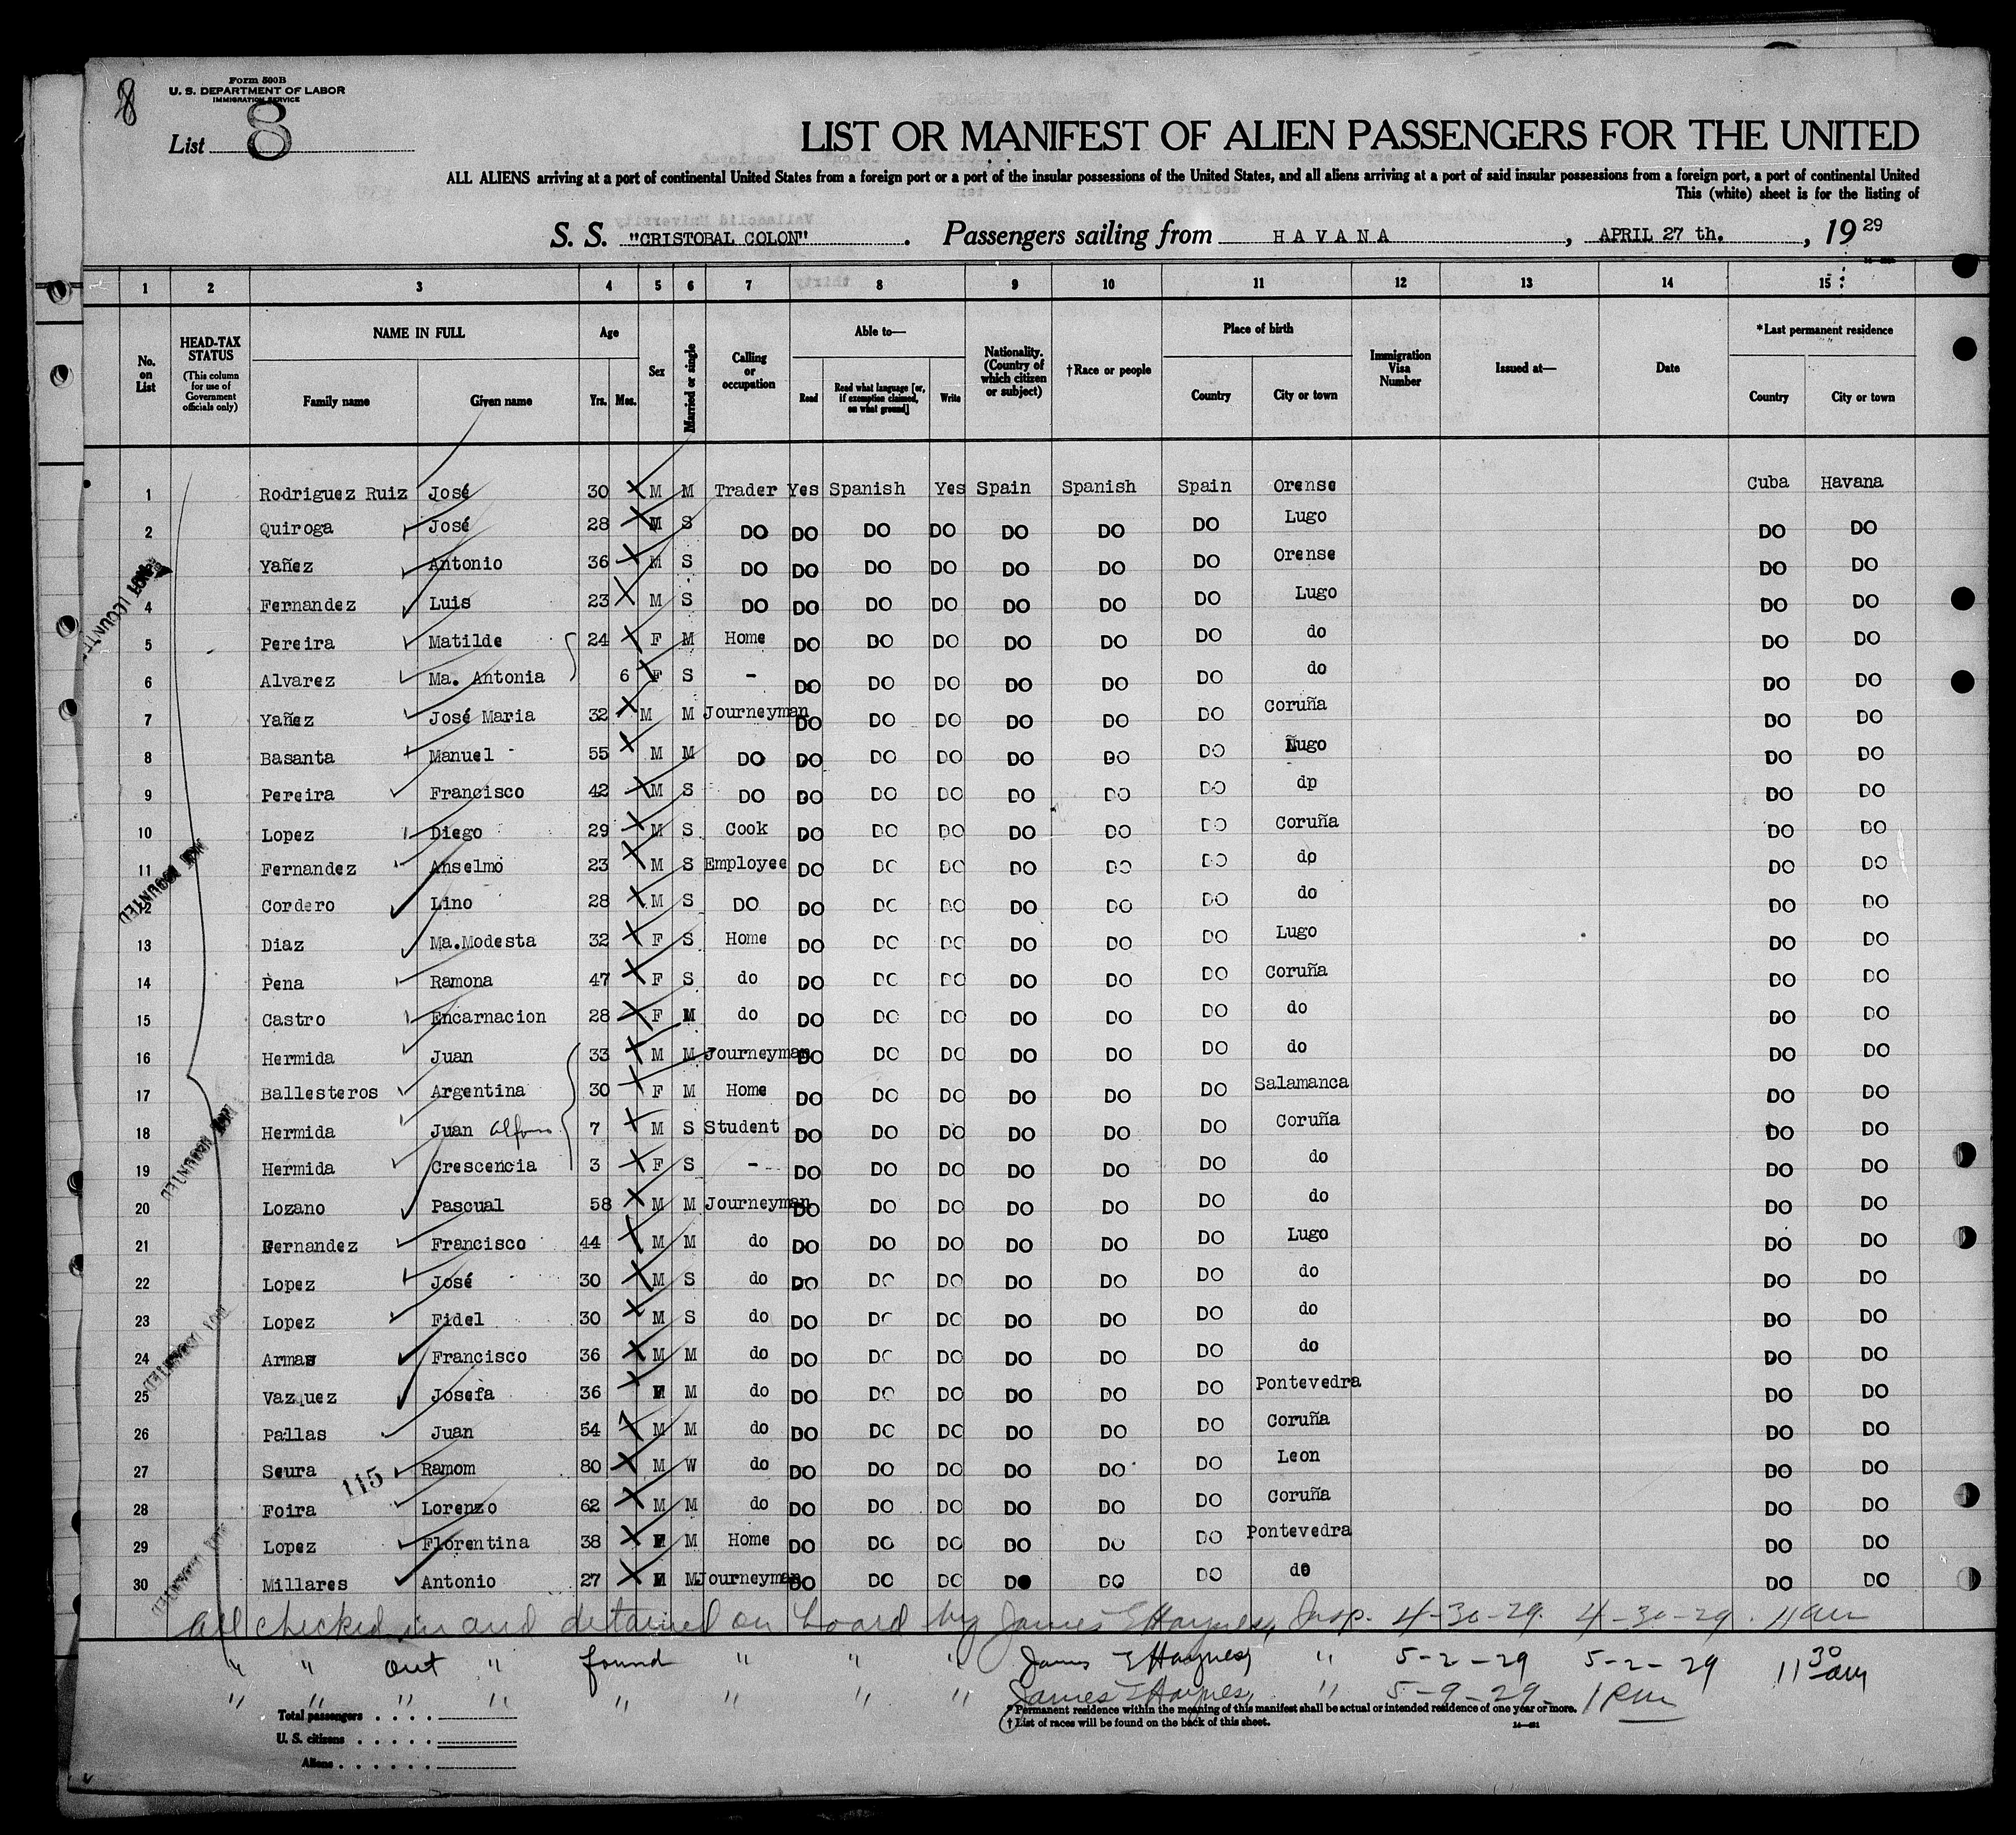 8
Form 500B
U. S. DEPARTMENT OF LABOR
IMMIGRATION SERVICE
List 8
LIST OR MANIFEST OF ALIEN PASSENGERS FOR THE UNITED
ALL ALIENS arriving at a port of continental United States from a foreign port or a port of the insular possessions of the United States, and all aliens arriving at a port of said insular possessions from a foreign port, a port of continental United
This (white) sheet is for the listing of
S. S. "CRISTOBAL COLON" . Passengers sailing from HAVANA , APRIL 27 th. , 19 29
1 2 3 4 5 6 7 8 9 10 11 12 13 14 15
No. on List HEAD-TAX STATUS (This column for use of Government officials only) NAME IN FULL Family name Given name Age Yrs. Mos. Sex Married or single Calling or occupation Able to— Read Read what language [or, if exemption claimed, on what ground] Write Nationality. (Country of which citizen or subject) †Race or people Place of birth Country City or town Immigration Visa Number Issued at— Date *Last permanent residence Country City or town
1 Rodriguez Ruiz José 30 M M Trader Yes Spanish Yes Spain Spanish Spain Orense Cuba Havana
2 Quiroga José 28 M S DO DO DO DO DO DO DO Lugo DO DO
Yañez Antonio 36 M S DO DO DO DO DO DO DO Orense DO DO
4 Fernandez Luis 23 M S DO DO DO DO DO DO DO Lugo DO DO
5 Pereira Matilde 24 F M Home DO DO DO DO DO DO do DO DO
6 Alvarez Ma. Antonia 6 F S - DO DO DO DO DO DO do DO DO
7 Yañez José Maria 32 M M Journeyman DO DO DO DO DO DO Coruña DO DO
8 Basanta Manuel 55 M M DO DO DO DO DO DO DO Lugo DO DO
9 Pereira Francisco 42 M S DO DO DO DO DO DO DO dp DO DO
10 Lopez Diego 29 M S Cook DO DO DO DO DO DO Coruña DO DO
11 Fernandez Anselmo 23 M S Employee DO DO DO DO DO DO do DO DO
12 Cordero Lino 28 M S DO DO DO DO DO DO DO do DO DO
13 Diaz Ma.Modesta 32 F S Home DO DO DO DO DO DO Lugo DO DO
14 Pena Ramona 47 F S do DO DO DO DO DO DO Coruña DO DO
15 Castro Encarnacion 28 F M do DO DO DO DO DO DO do DO DO
16 Hermida Juan 33 M M Journeyman DO DO DO DO DO DO do DO DO
17 Ballesteros Argentina 30 F M Home DO DO DO DO DO DO Salamanca DO DO
18 Hermida Juan 7 M S Student DO DO DO DO DO DO Coruña DO DO
19 Hermida Crescencia 3 F S - DO DO DO DO DO DO do DO DO
20 Lozano Pascual 58 M M Journeyman DO DO DO DO DO DO do DO DO
21 Fernandez Francisco 44 M M do DO DO DO DO DO DO Lugo DO DO
22 Lopez José 30 M S do DO DO DO DO DO DO do DO DO
23 Lopez Fidel 30 M S do DO DO DO DO DO DO do DO DO
24 Armas Francisco 36 M M do DO DO DO DO DO DO do DO DO
25 Vazquez Josefa 36 M do DO DO DO DO DO DO Pontevedra DO DO
26 Pallas Juan 54 M M do DO DO DO DO DO DO Coruña DO DO
27 Seura 115 Ramom 80 M W do DO DO DO DO DO DO Leon DO DO
28 Foira Lorenzo 62 M M do DO DO DO DO DO DO Coruña DO DO
29 Lopez Florentina 38 M Home DO DO DO DO DO DO Pontevedra DO DO
30 Millares Antonio 27 M M Journeyman DO DO DO DO DO DO do DO DO
NOT COUNTED
NOT COUNTED
NOT COUNTED
NOT COUNTED
NOT COUNTED
All checked in and detained on board by James E Haynes, Insp. 4-30-29. 4-30-29. 11 am
" " out " found " " " James E Haynes, " 5-2-29 5-2-29 11 30 am
" " " " " " " " James E Haynes, " 5-9-29 1 Pm
Total passengers . . . .
U. S. citizens . . . . .
Aliens . . . . . .
*Permanent residence within the meaning of this manifest shall be actual or intended residence of one year or more.
†List of races will be found on the back of this sheet.